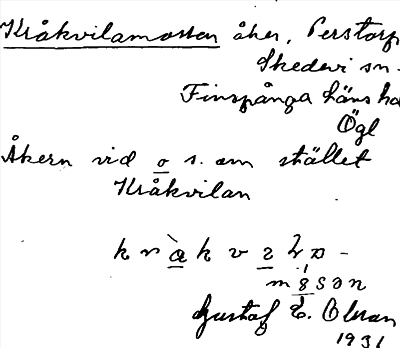 Kråkvilamossen åker, Perstorp
Skedevi sn.
Finspånga läns hd
Ögl
Åkern vid o s. om stället
Kråkvilan
Gustaf E. Olsson
1931